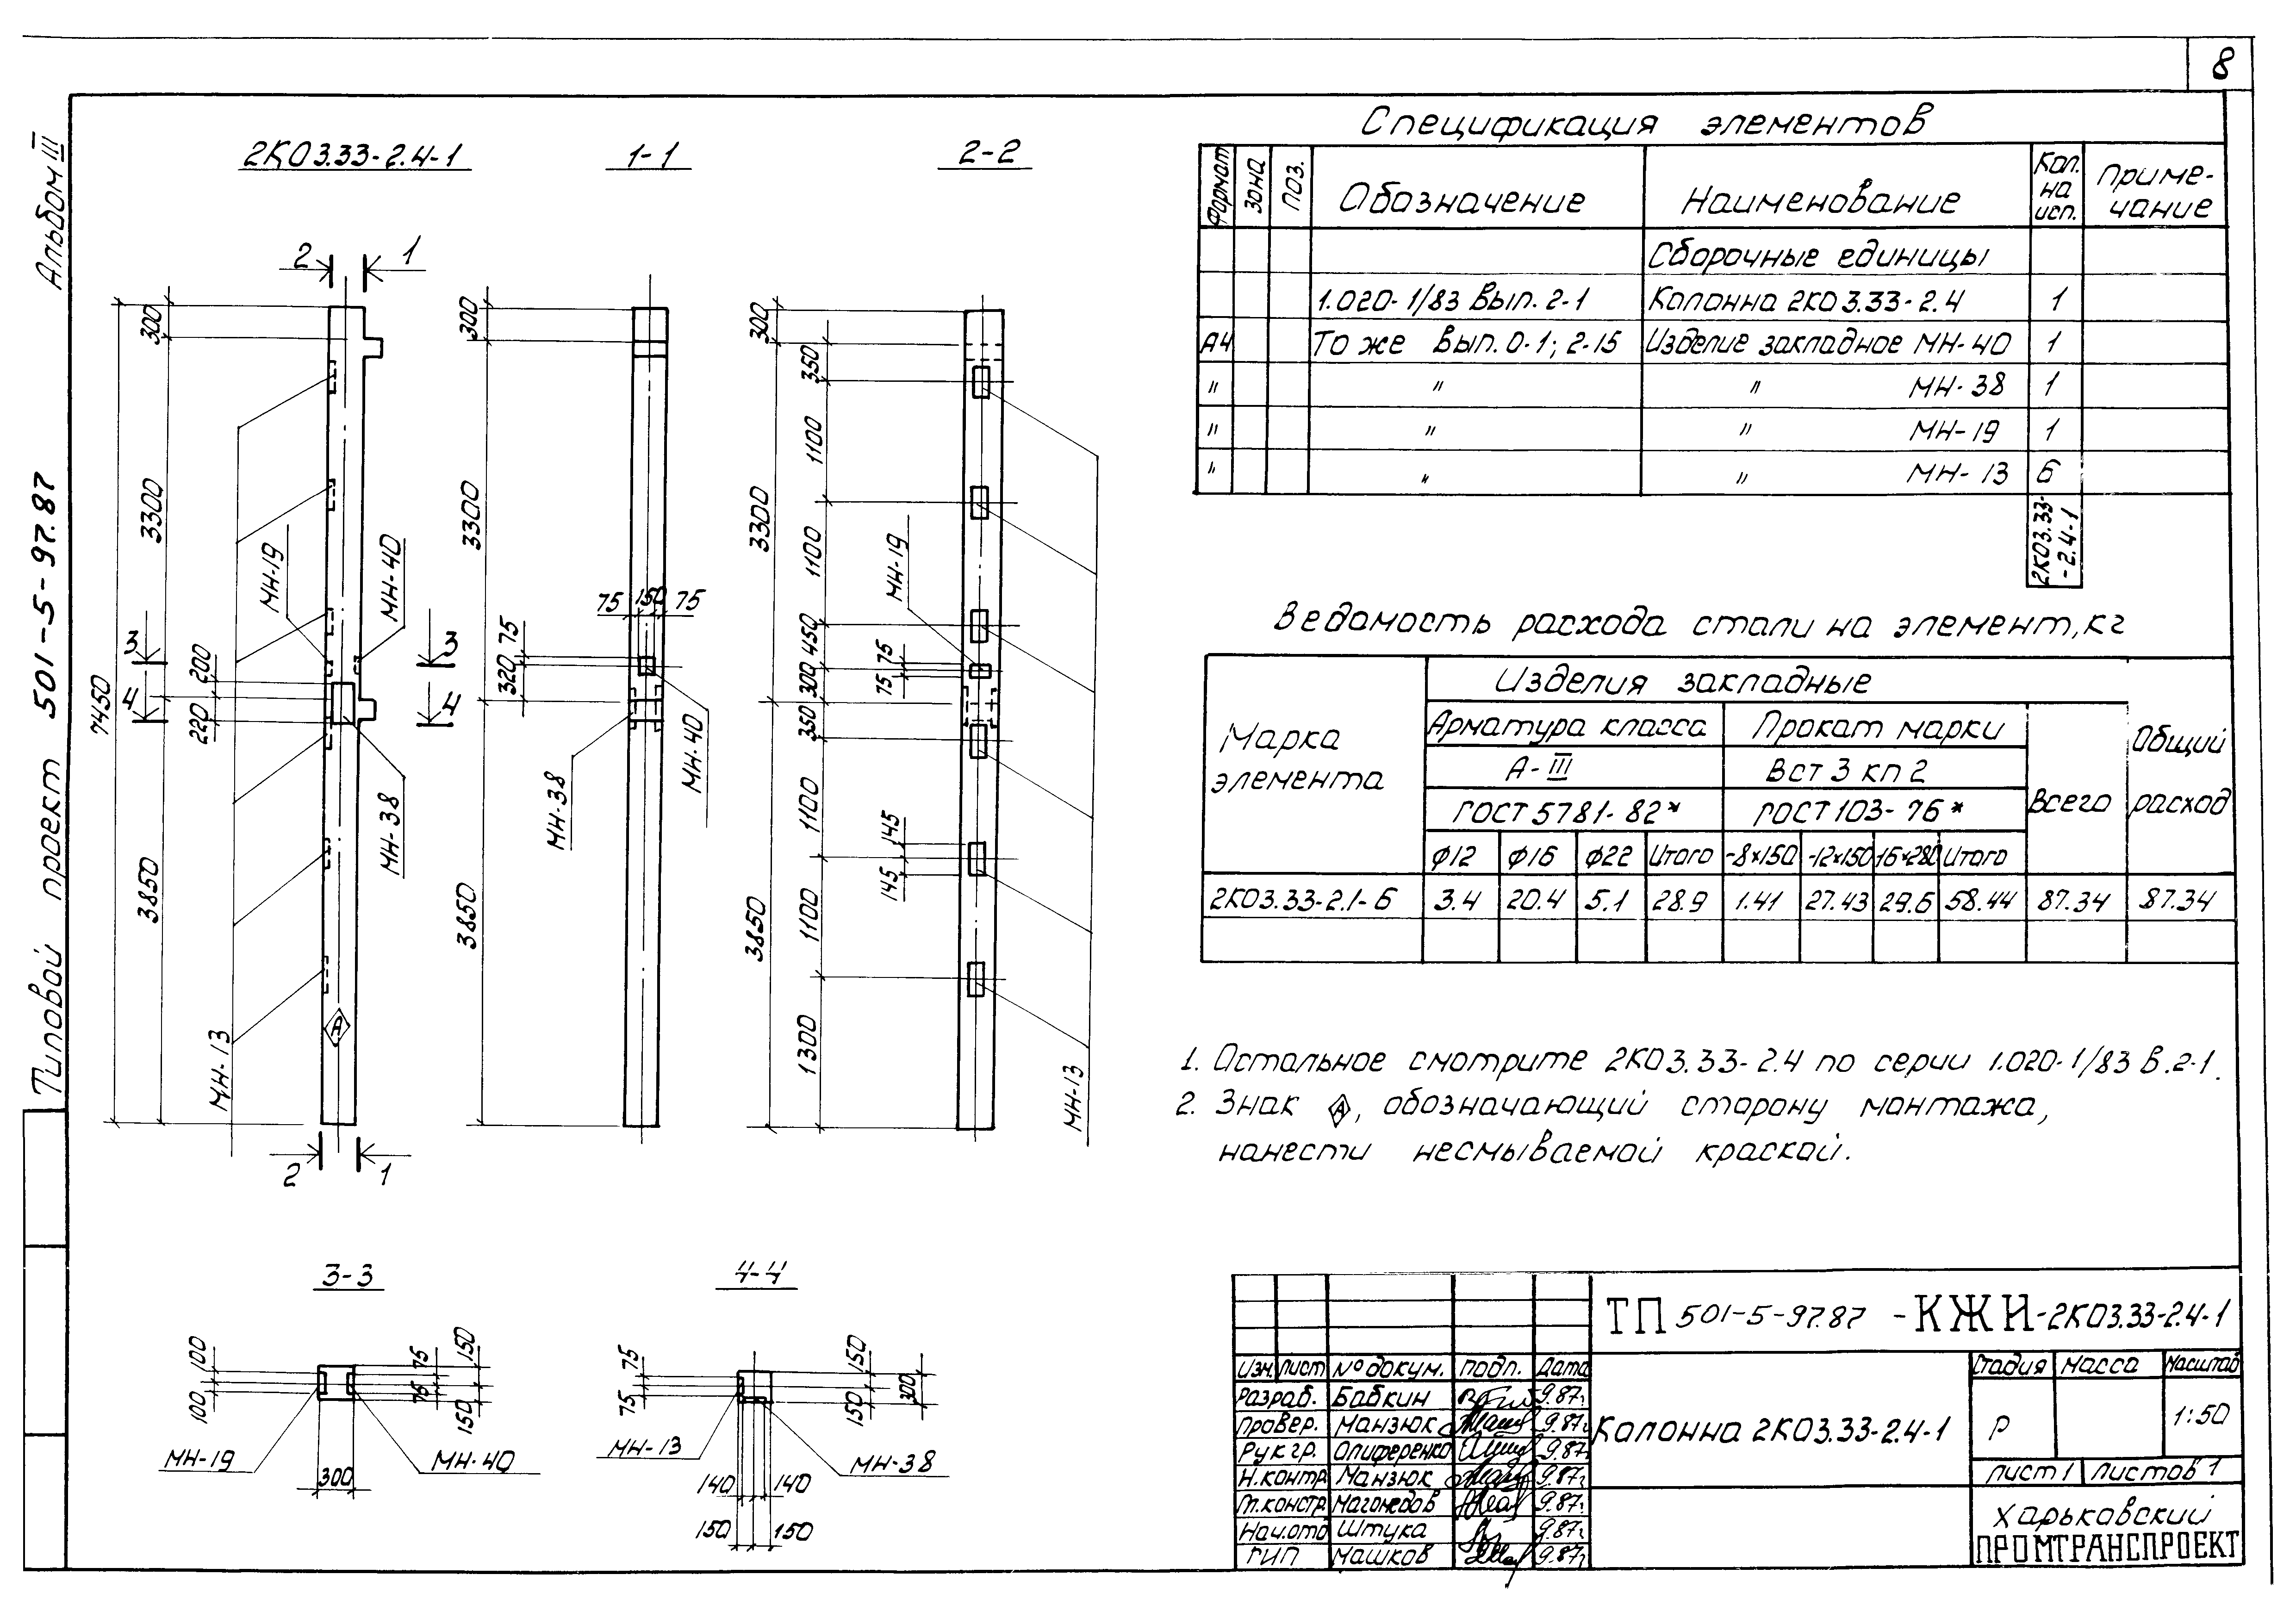 8
Альбом III
Типовой проект 501-5-97.87
2КО3.33-2.4-1
1-1
2-2
2
1
300
3300
7450
3850
МН-19
МН-40
3
3
200
4
4
220
МН-38
МН-13
А
2
1
300
3300
75
150
75
75
320
МН-38
МН-40
3850
300
350
1100
3300
1100
МН-19
450
75
300
75
350
1100
145
145
3850
1100
1300
МН-13
3-3
100
100
75
75
150
150
МН-19
МН-40
300
4-4
75
75
150
150
300
МН-13
МН-38
140
140
150
150
Спецификация элементов
Формат
Зона
Поз.
Обозначение
Наименование
Кол. на исп.
Приме-
чание
Сборочные единицы
1.020-1/83 Вып. 2-1 Колонна 2КО3.33-2.4 1
А4 То же Вып. 0-1; 2-15 Изделие закладное МН-40 1
" " " МН-38 1
" " " МН-19 1
" " " МН-13 6
2КО3.33-
-2.4-1
Ведомость расхода стали на элемент, кг
Марка
элемента
Изделия закладные
Арматура класса
Прокат марки
А-III
Вст 3 кп 2
ГОСТ 5781-82*
ГОСТ 103-76*
Всего
Общий
расход
ф12 ф16 ф22 Итого -8×150 -12×150 -16×280 Итого
2КО3.33-2.1-6 3.4 20.4 5.1 28.9 1.41 27.43 29.6 58.44 87.34 87.34
1. Остальное смотрите 2КО3.33-2.4 по серии 1.020-1/83 в.2-1.
2. Знак А, обозначающий сторону монтажа,
нанести несмываемой краской.
ТП 501-5-97.87 -КЖИ-2КО3.33-2.4-1
Изм. Лист № докум. Подп. Дата
Разраб. Бабкин 9.87г.
Провер. Манзюк 9.87г.
Рук гр. Олиференко 9.87г.
Н.контр. Манзюк 9.87г.
Гл.констр. Магомедов 9.87г.
Нач.отд Штука 9.87г.
ГИП Машков 9.87г.
Колонна 2КО3.33-2.4-1
Стадия Масса Масштаб
Р 1:50
Лист 1 Листов 1
Харьковский
ПРОМТРАНСПРОЕКТ